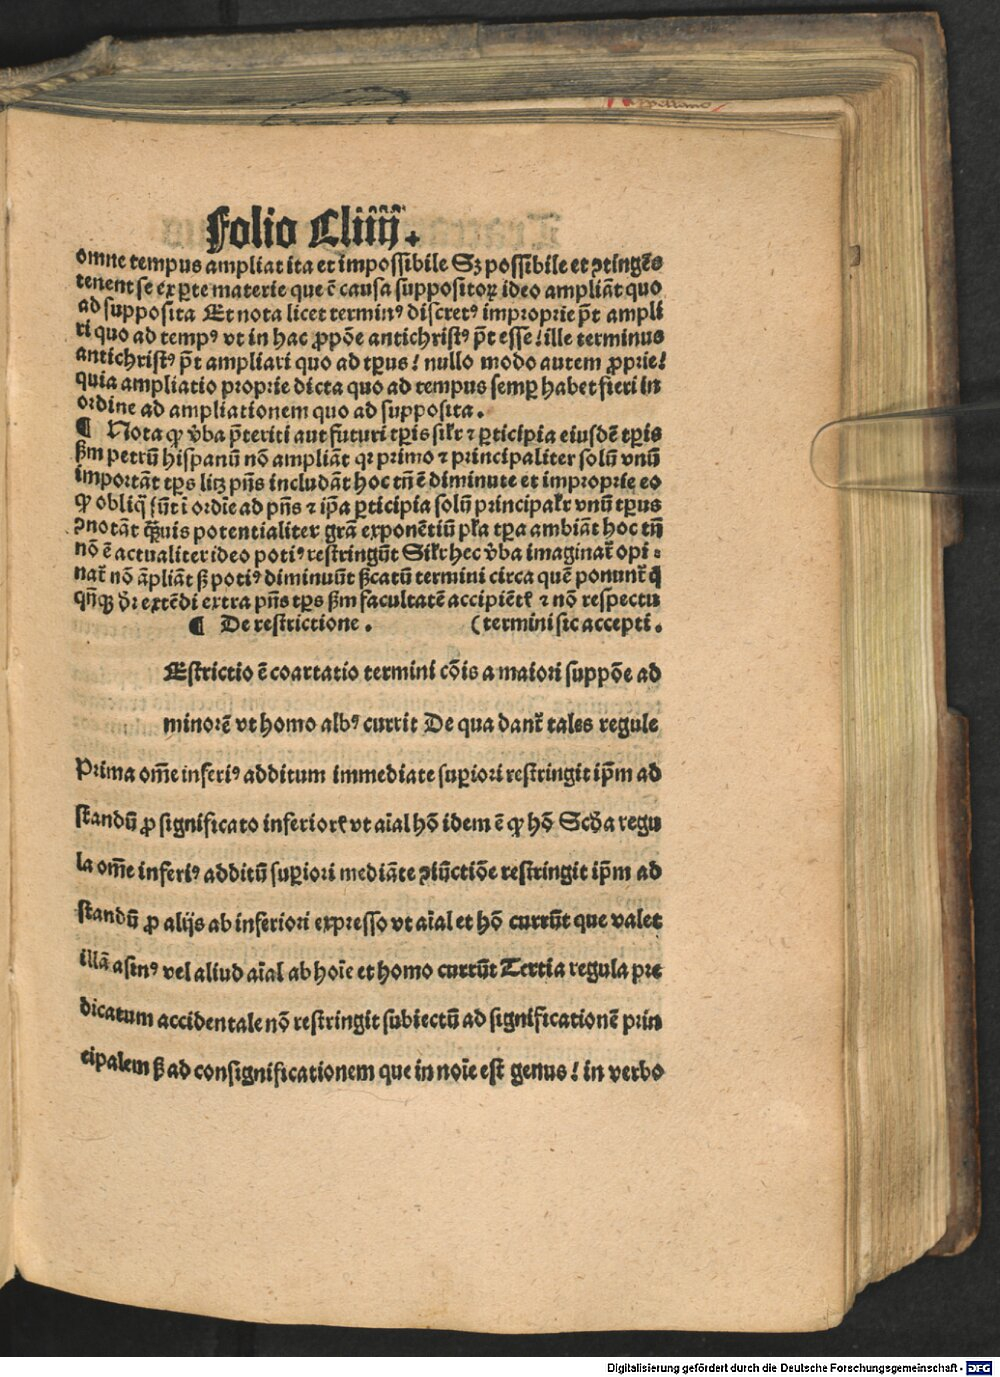 Folio Cliiij.
omne tempus ampliat ita et impossibile Sꝫ possibile et ꝯtingēs
tenent se ex ꝑte materie que ē causa suppositoꝝ ideo ampliāt quo
ad supposita Et nota licet terminꝰ discretꝰ improprie pn̄t ampli
ri quo ad tempꝰ vt in hac ꝓpōe antichristꝰ pn̄t esse! ille terminus
antichristꝰ pn̄t ampliari quo ad tꝑus! nullo modo autem ꝓprie!
quia ampliatio proprie dicta quo ad tempus semꝑ habet fieri in
ordine ad ampliationem quo ad supposita.
¶ Nota ꝙ v̄ba p̄teriti aut futuri tꝑis sil̄r ⁊ ꝑticipia eiusdē tꝑis
ẜm petrū hispanū nō ampliāt qꝛ primo ⁊ principaliter solū vnū
importāt tꝑs licꝫ pn̄s includāt hoc tn̄ ē diminute et improprie eo
ꝙ obliq̄ sūt ī ordīe ad pn̄s ⁊ ip̄a ꝑticipia solū principal̄r vnū tꝑus
ꝯnotāt q̄ꝫuis potentialiter grā exponētiū pl̄a tꝑa ambiāt hoc tn̄
nō ē actualiter ideo potiꝰ restringūt Sil̄r hec v̄ba imaginat̄ opi⸗
nat̄ nō āpliāt ẜ potiꝰ diminuūt ẜcatū termini circa quē ponunt̄ q̄
qn̄qꝫ dꝛ extēdi extra pn̄s tꝑs ẜm facultatē accipiētꝭ ⁊ nō respectu
¶ De restrictione. (termini sic accepti.
Estrictio ē coartatio termini cōis a maiori suppōe ad
minorē vt homo albꝰ currit De qua dant̄ tales regule
Prima om̄e inferiꝰ additum immediate suꝑiori restringit ip̄m ad
standū ꝓ significato inferiorꝭ vt aīal hō idem ē ꝙ hō Scd̄a regu
la om̄e inferiꝰ additū suꝑiori mediāte ꝯiūctiōe restringit ip̄m ad
standū ꝓ alijs ab inferiori expresso vt aīal et hō currūt que valet
illā asinꝰ vel aliud aīal ab hoīe et homo currūt Tertia regula pre
dicatum accidentale nō restringit subiectū ad significationē prin
cipalem ẜ ad consignificationem que in noīe est genus! in verbo
Digitalisierung gefördert durch die Deutsche Forschungsgemeinschaft - DFG